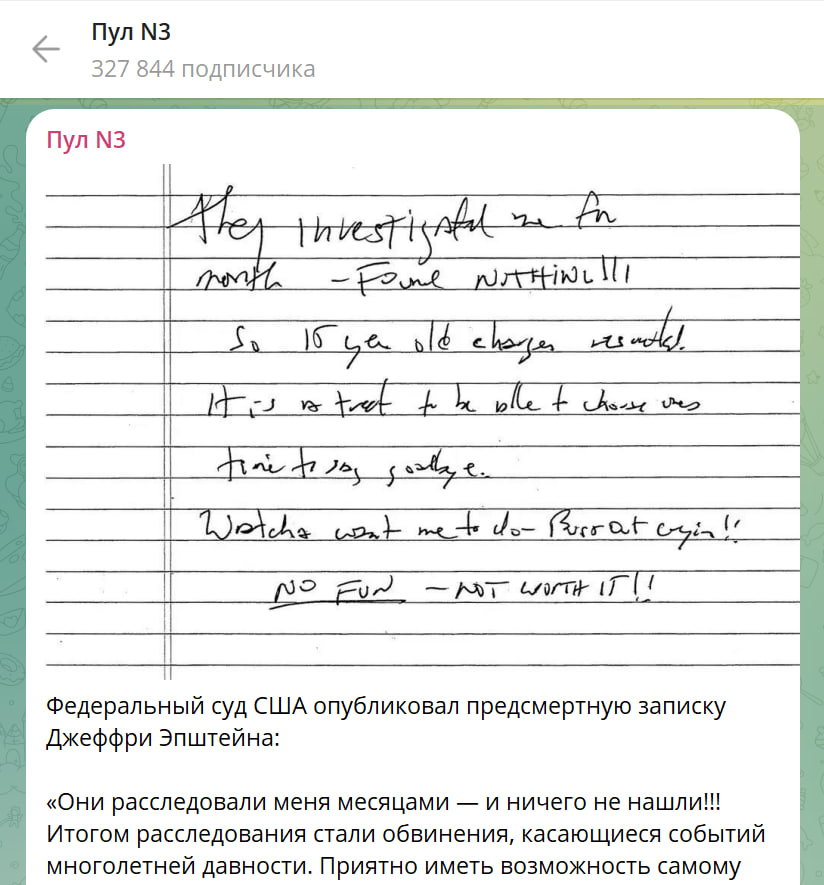 Пул N3
327 844 подписчика
Пул N3
they investigated me for
month - Found NOTHING!!!
So 15 year old charges resulted.
It is a treat to be able to choose ones
time to say goodbye.
Watcha want me to do - Burst out cryin!!
NO FUN - NOT WORTH IT!!
Федеральный суд США опубликовал предсмертную записку
Джеффри Эпштейна:
«Они расследовали меня месяцами — и ничего не нашли!!!
Итогом расследования стали обвинения, касающиеся событий
многолетней давности. Приятно иметь возможность самому